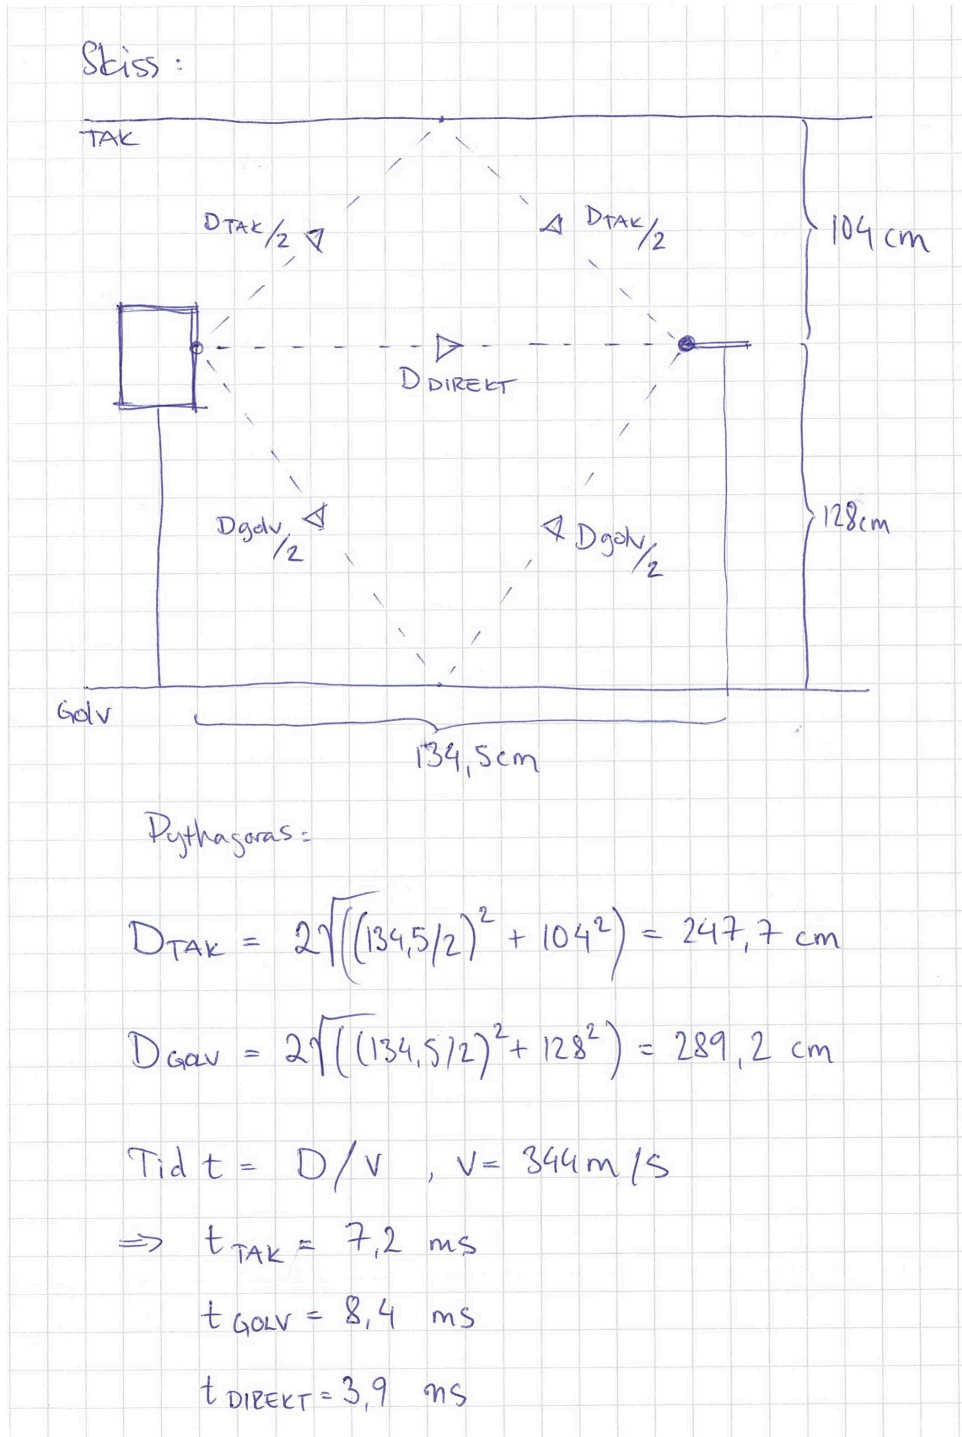 Skiss :
TAK
DTAK/2
DTAK/2
104 cm
DDIREKT
Dgolv/2
Dgolv/2
128cm
Golv
134,5cm
Pythagoras:
DTAK = 2√((134,5/2)² + 104²) = 247,7 cm
DGOLV = 2√((134,5/2)² + 128²) = 289,2 cm
Tid t = D/V , V= 344m/s
⇒ tTAK = 7,2 ms
tGOLV = 8,4 ms
tDIREKT = 3,9 ms